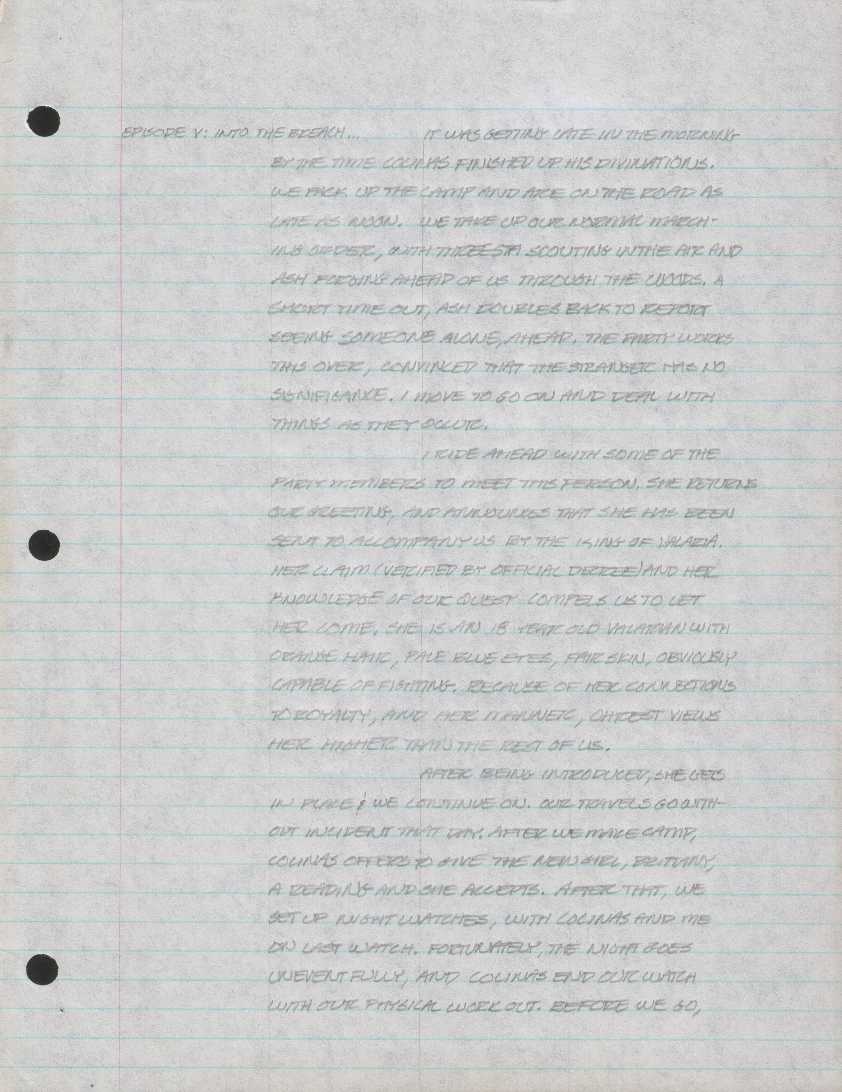 EPISODE V: INTO THE BREACH... IT WAS GETTING LATE IN THE MORNING
BY THE TIME COLINAS FINISHED UP HIS DIVINATIONS.
WE PACK UP THE CAMP AND ARE ON THE ROAD AS
LATE AS NOON. WE TAKE UP OUR NORMAL MARCH-
ING ORDER, WITH SCOUTING IN THE AIR AND
ASH FORGING AHEAD OF US THROUGH THE WOODS. A
SHORT TIME OUT, ASH DOUBLES BACK TO REPORT
SEEING SOMEONE ALONE, AHEAD. THE PARTY WORKS
THIS OVER, CONVINCED THAT THE STRANGER HAS NO
SIGNIFIGANCE. I MOVE TO GO ON AND DEAL WITH
THINGS AS THEY OCCUR.
I RIDE AHEAD WITH SOME OF THE
PARTY MEMBERS TO MEET THIS PERSON. SHE RETURNS
OUR GREETING, AND ANNOUNCES THAT SHE HAS BEEN
SENT TO ACCOMPANY US BY THE KING OF VALARIA.
HER CLAIM (VERIFIED BY OFFICIAL DECREE) AND HER
KNOWLEDGE OF OUR QUEST COMPELS US TO LET
HER COME. SHE IS AN 18 YEAR OLD VALARIAN WITH
ORANGE HAIR, PALE BLUE EYES, FAIR SKIN, OBVIOUSLY
CAPABLE OF FIGHTING. BECAUSE OF HER CONNECTIONS
TO ROYALTY, AND HER MANNER, VIEWS
HER HIGHER THAN THE REST OF US.
AFTER BEING INTRODUCED, SHE GETS
IN PLACE & WE CONTINUE ON. OUR TRAVELS GO WITH-
OUT INCIDENT THAT DAY. AFTER WE MAKE CAMP,
COLINAS OFFERS TO GIVE THE NEW GIRL, BRITTANY,
A READING AND SHE ACCEPTS. AFTER THAT, WE
SET UP NIGHT WATCHES, WITH COLINAS AND ME
ON LAST WATCH. FORTUNATELY, THE NIGHT GOES
UNEVENTFULLY, AND COLINAS END OUR WATCH
WITH OUR PHYSICAL WORK OUT. BEFORE WE GO,